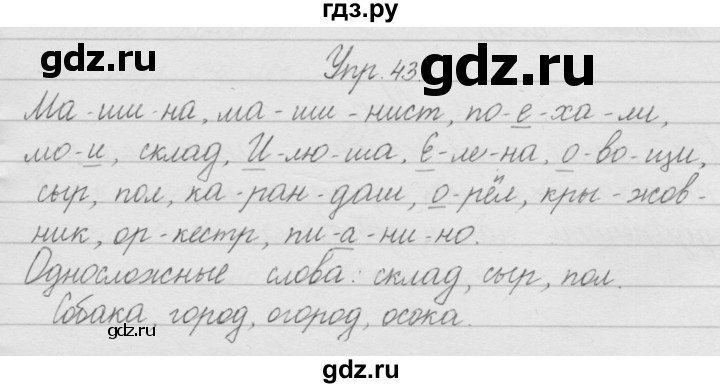 гдз.ру
gdz.ru gdz.ru
Упр. 43
Ма-ши-на, ма-ши-нист, по-е-ха-ли,
мо-и, склад, И-лю-ша, Е-ле-на, о-во-щи,
gdz.ru
сыр, пол, ка-ран-даш, о-рёл, кры-жов-
ник, ор-кестр, пи-а-ни-но.
Односложные слова: склад, сыр, пол.
gdz.ru gdz.ru
Собака, город, огород, осока.
gdz.ru